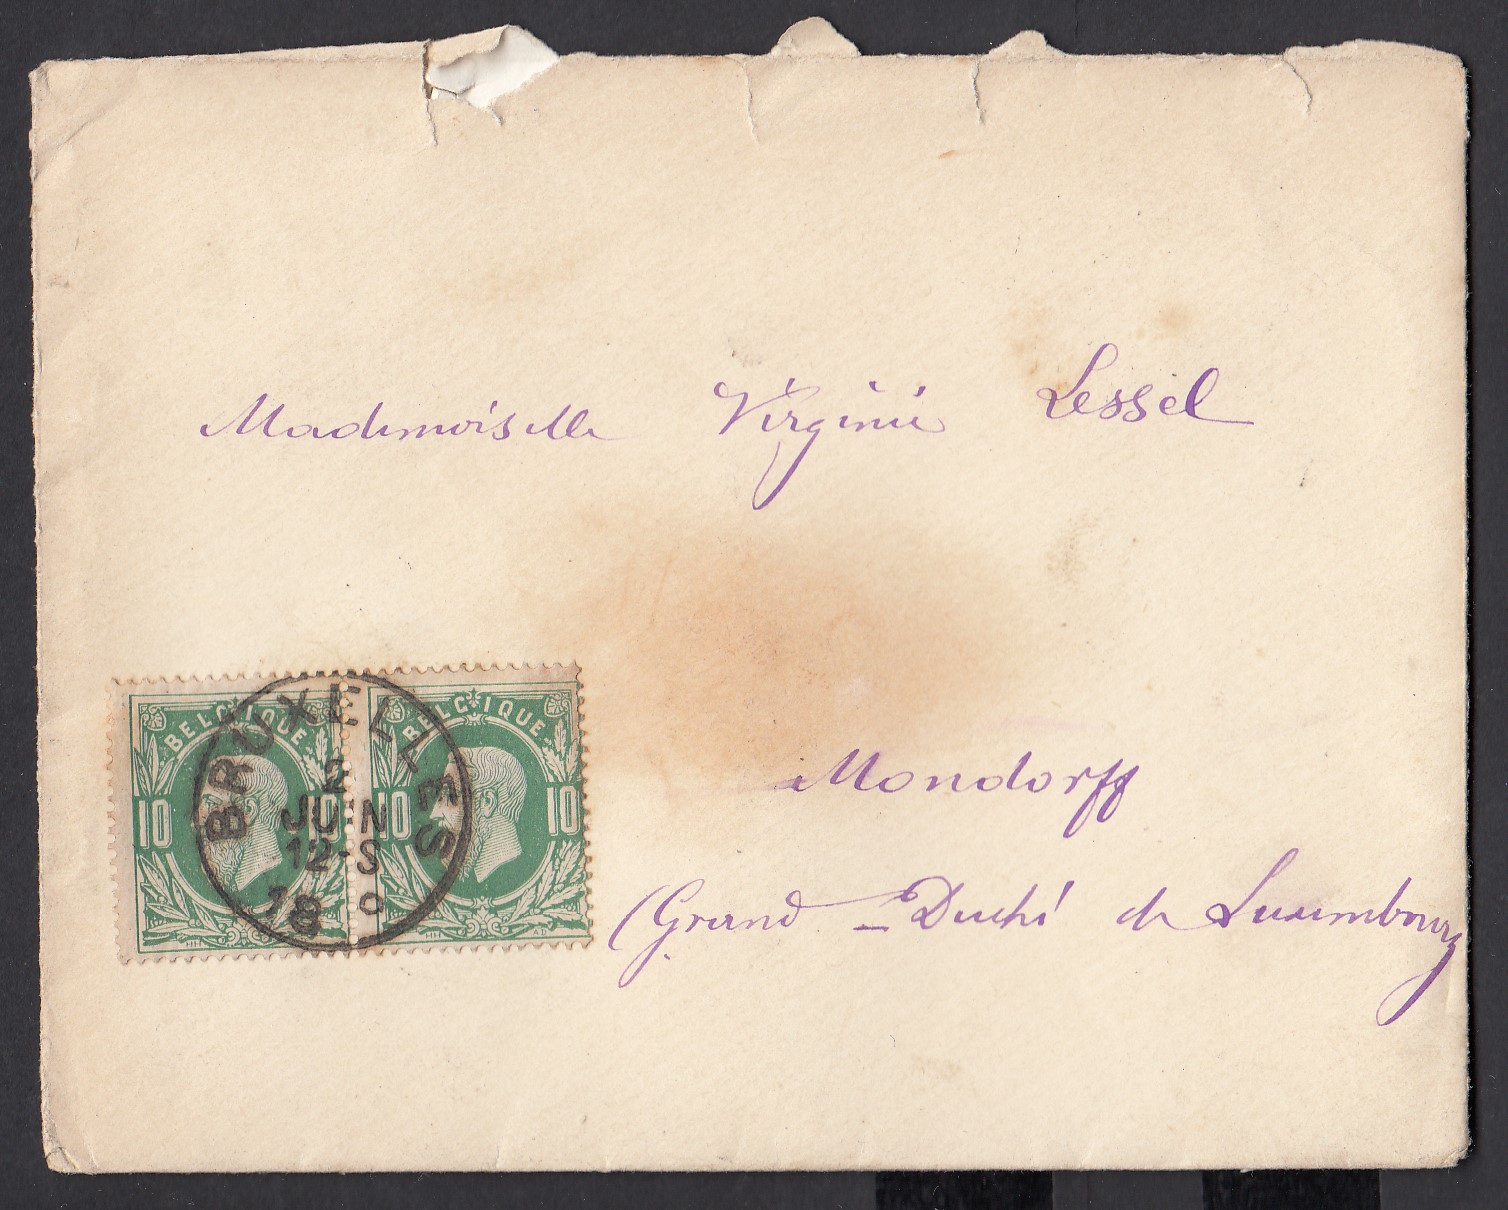 Mademoiselle Virginie Lessel
Mondorff
(Grand-Duché de Luxembourg
BELGIQUE
10 10
BELGIQUE
10 10
BRUXELLES
2
JUIN
12-S
18